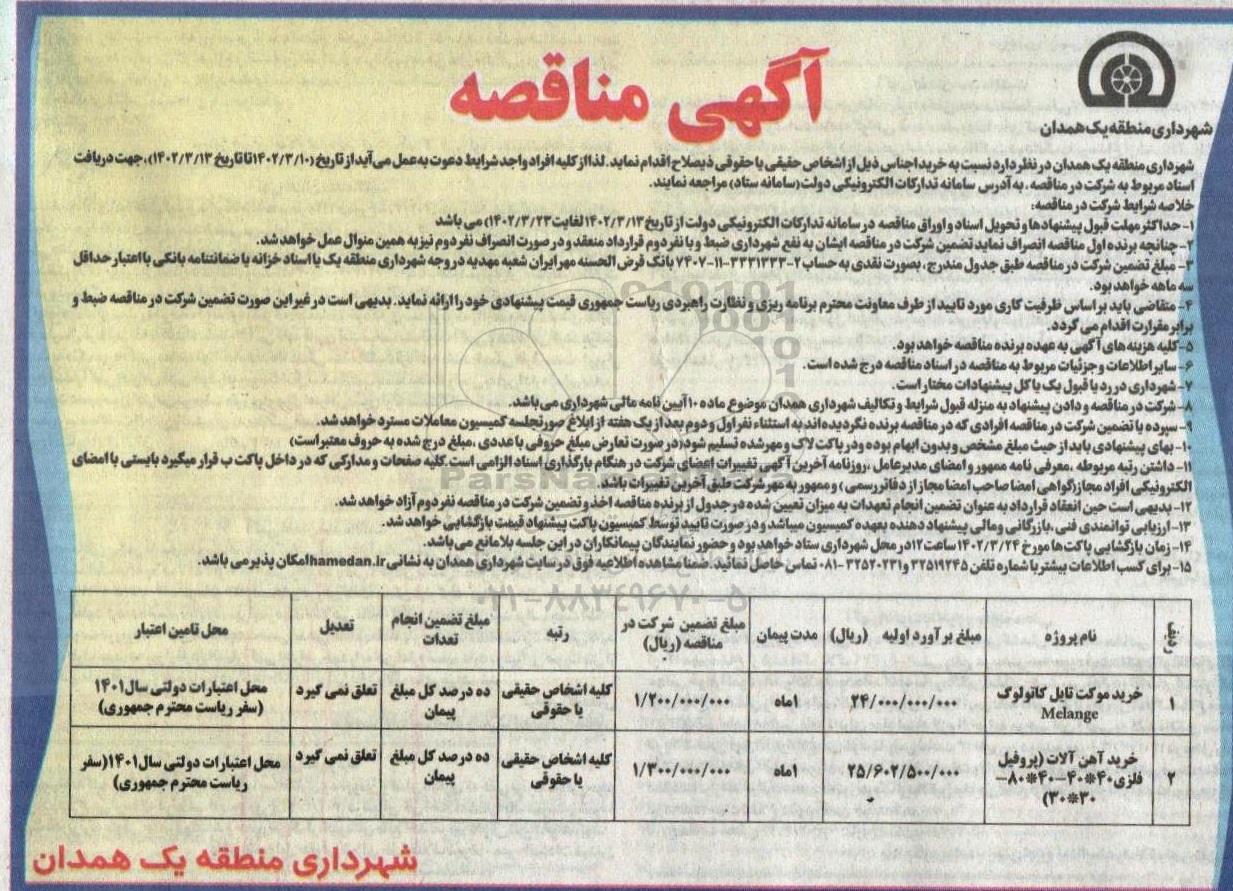 آگهی مناقصه
شهرداری منطقه یک همدان
شهرداری منطقه یک همدان در نظر دارد نسبت به خرید اجناس ذیل از اشخاص حقیقی یا حقوقی ذیصلاح اقدام نماید. لذا از کلیه افراد واجد شرایط دعوت به عمل می آید از تاریخ (۱۴۰۲/۳/۱۰ تا تاریخ ۱۴۰۲/۳/۱۳)، جهت دریافت
اسناد مربوط به شرکت در مناقصه، به آدرس سامانه تدارکات الکترونیکی دولت (سامانه ستاد) مراجعه نمایند.
خلاصه شرایط شرکت در مناقصه:
۱- حداکثر مهلت قبول پیشنهادها و تحویل اسناد و اوراق مناقصه در سامانه تدارکات الکترونیکی دولت از تاریخ ۱۴۰۲/۳/۱۳ لغایت ۱۴۰۲/۳/۲۳) می باشد
۲- چنانچه برنده اول مناقصه انصراف نماید تضمین شرکت در مناقصه ایشان به نفع شهرداری ضبط و با نفر دوم قرارداد منعقد و در صورت انصراف نفر دوم نیز به همین منوال عمل خواهد شد.
۳- مبلغ تضمین شرکت در مناقصه طبق جدول مندرج، بصورت نقدی به حساب ۲-۳۳۳۱۳۳۳-۱۱-۷۴۰۷ بانک قرض الحسنه مهر ایران شعبه مهدیه در وجه شهرداری منطقه یک یا اسناد خزانه یا ضمانتنامه بانکی با اعتبار حداقل
سه ماهه خواهد بود.
۴- متقاضی باید بر اساس ظرفیت کاری مورد تایید از طرف معاونت محترم برنامه ریزی و نظارت راهبردی ریاست جمهوری قیمت پیشنهادی خود را ارائه نماید. بدیهی است در غیر این صورت تضمین شرکت در مناقصه ضبط و
برابر مقررات اقدام می گردد.
۵- کلیه هزینه های آگهی به عهده برنده مناقصه خواهد بود.
۶- سایر اطلاعات و جزئیات مربوط به مناقصه در اسناد مناقصه درج شده است.
۷- شهرداری در رد یا قبول یک یا کل پیشنهادات مختار است.
۸- شرکت در مناقصه و دادن پیشنهاد به منزله قبول شرایط و تکالیف شهرداری همدان موضوع ماده ۱۰ آیین نامه مالی شهرداری می باشد.
۹- سپرده یا تضمین شرکت در مناقصه افرادی که در مناقصه برنده نگردیده اند به استثناء نفر اول و دوم بعد از یک هفته از ابلاغ صورتجلسه کمیسیون معاملات مسترد خواهد شد.
۱۰- بهای پیشنهادی باید از حیث مبلغ مشخص و بدون ابهام بوده و در پاکت لاک و مهر شده تسلیم شود (در صورت تعارض مبلغ حروفی با عددی، مبلغ درج شده به حروف معتبر است)
۱۱- داشتن رتبه مربوطه، معرفی نامه ممهور و امضای مدیرعامل، روزنامه آخرین آگهی تغییرات اعضای شرکت در هنگام بارگذاری اسناد الزامی است. کلیه صفحات و مدارکی که در داخل پاکت ب قرار میگیرد بایستی با امضای
الکترونیکی افراد مجاز (گواهی امضا صاحب امضا مجاز از دفاتر رسمی) و ممهور به مهر شرکت طبق آخرین تغییرات باشد
۱۲- بدیهی است حین انعقاد قرارداد به عنوان تضمین انجام تعهدات به میزان تعیین شده در جدول از برنده مناقصه اخذ و تضمین شرکت در مناقصه نفر دوم آزاد خواهد شد.
۱۳- ارزیابی توانمندی فنی، بازرگانی و مالی پیشنهاد دهنده بعهده کمیسیون میباشد و در صورت تایید توسط کمیسیون پاکت پیشنهاد قیمت بازگشایی خواهد شد.
۱۴- زمان بازگشایی پاکت ها مورخ ۱۴۰۲/۳/۲۴ ساعت ۱۲ در محل شهرداری ستاد خواهد بود و حضور نمایندگان پیمانکاران در این جلسه بلامانع می باشد.
۱۵- برای کسب اطلاعات بیشتر با شماره تلفن ۳۲۵۱۹۲۴۵ و ۳۲۵۲۰۲۳۱-۰۸۱ تماس حاصل نمائید. ضمنا مشاهده اطلاعیه فوق در سایت شهرداری همدان به نشانی hamedan.ir امکان پذیر می باشد.
۰۲۱-۸۸۳۴۹۶۷۰-۵
ردیف | نام پروژه | مبلغ برآورد اولیه (ریال) | مدت پیمان | مبلغ تضمین شرکت در مناقصه (ریال) | رتبه | مبلغ تضمین انجام تعدات | تعدیل | محل تامین اعتبار
۱ | خرید موکت تایل کاتولوگ Melange | ۲۴/۰۰۰/۰۰۰/۰۰۰ | ۱ماه | ۱/۲۰۰/۰۰۰/۰۰۰ | کلیه اشخاص حقیقی یا حقوقی | ده درصد کل مبلغ پیمان | تعلق نمی گیرد | محل اعتبارات دولتی سال ۱۴۰۱ (سفر ریاست محترم جمهوری)
۲ | خرید آهن آلات (پروفیل فلزی ۴۰*۴۰-۴۰*۸۰-۳۰*۳۰) | ۲۵/۶۰۲/۵۰۰/۰۰۰ | ۱ماه | ۱/۳۰۰/۰۰۰/۰۰۰ | کلیه اشخاص حقیقی یا حقوقی | ده درصد کل مبلغ پیمان | تعلق نمی گیرد | محل اعتبارات دولتی سال ۱۴۰۱ (سفر ریاست محترم جمهوری)
شهرداری منطقه یک همدان